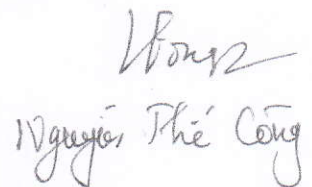 Nguyễn Thế Công